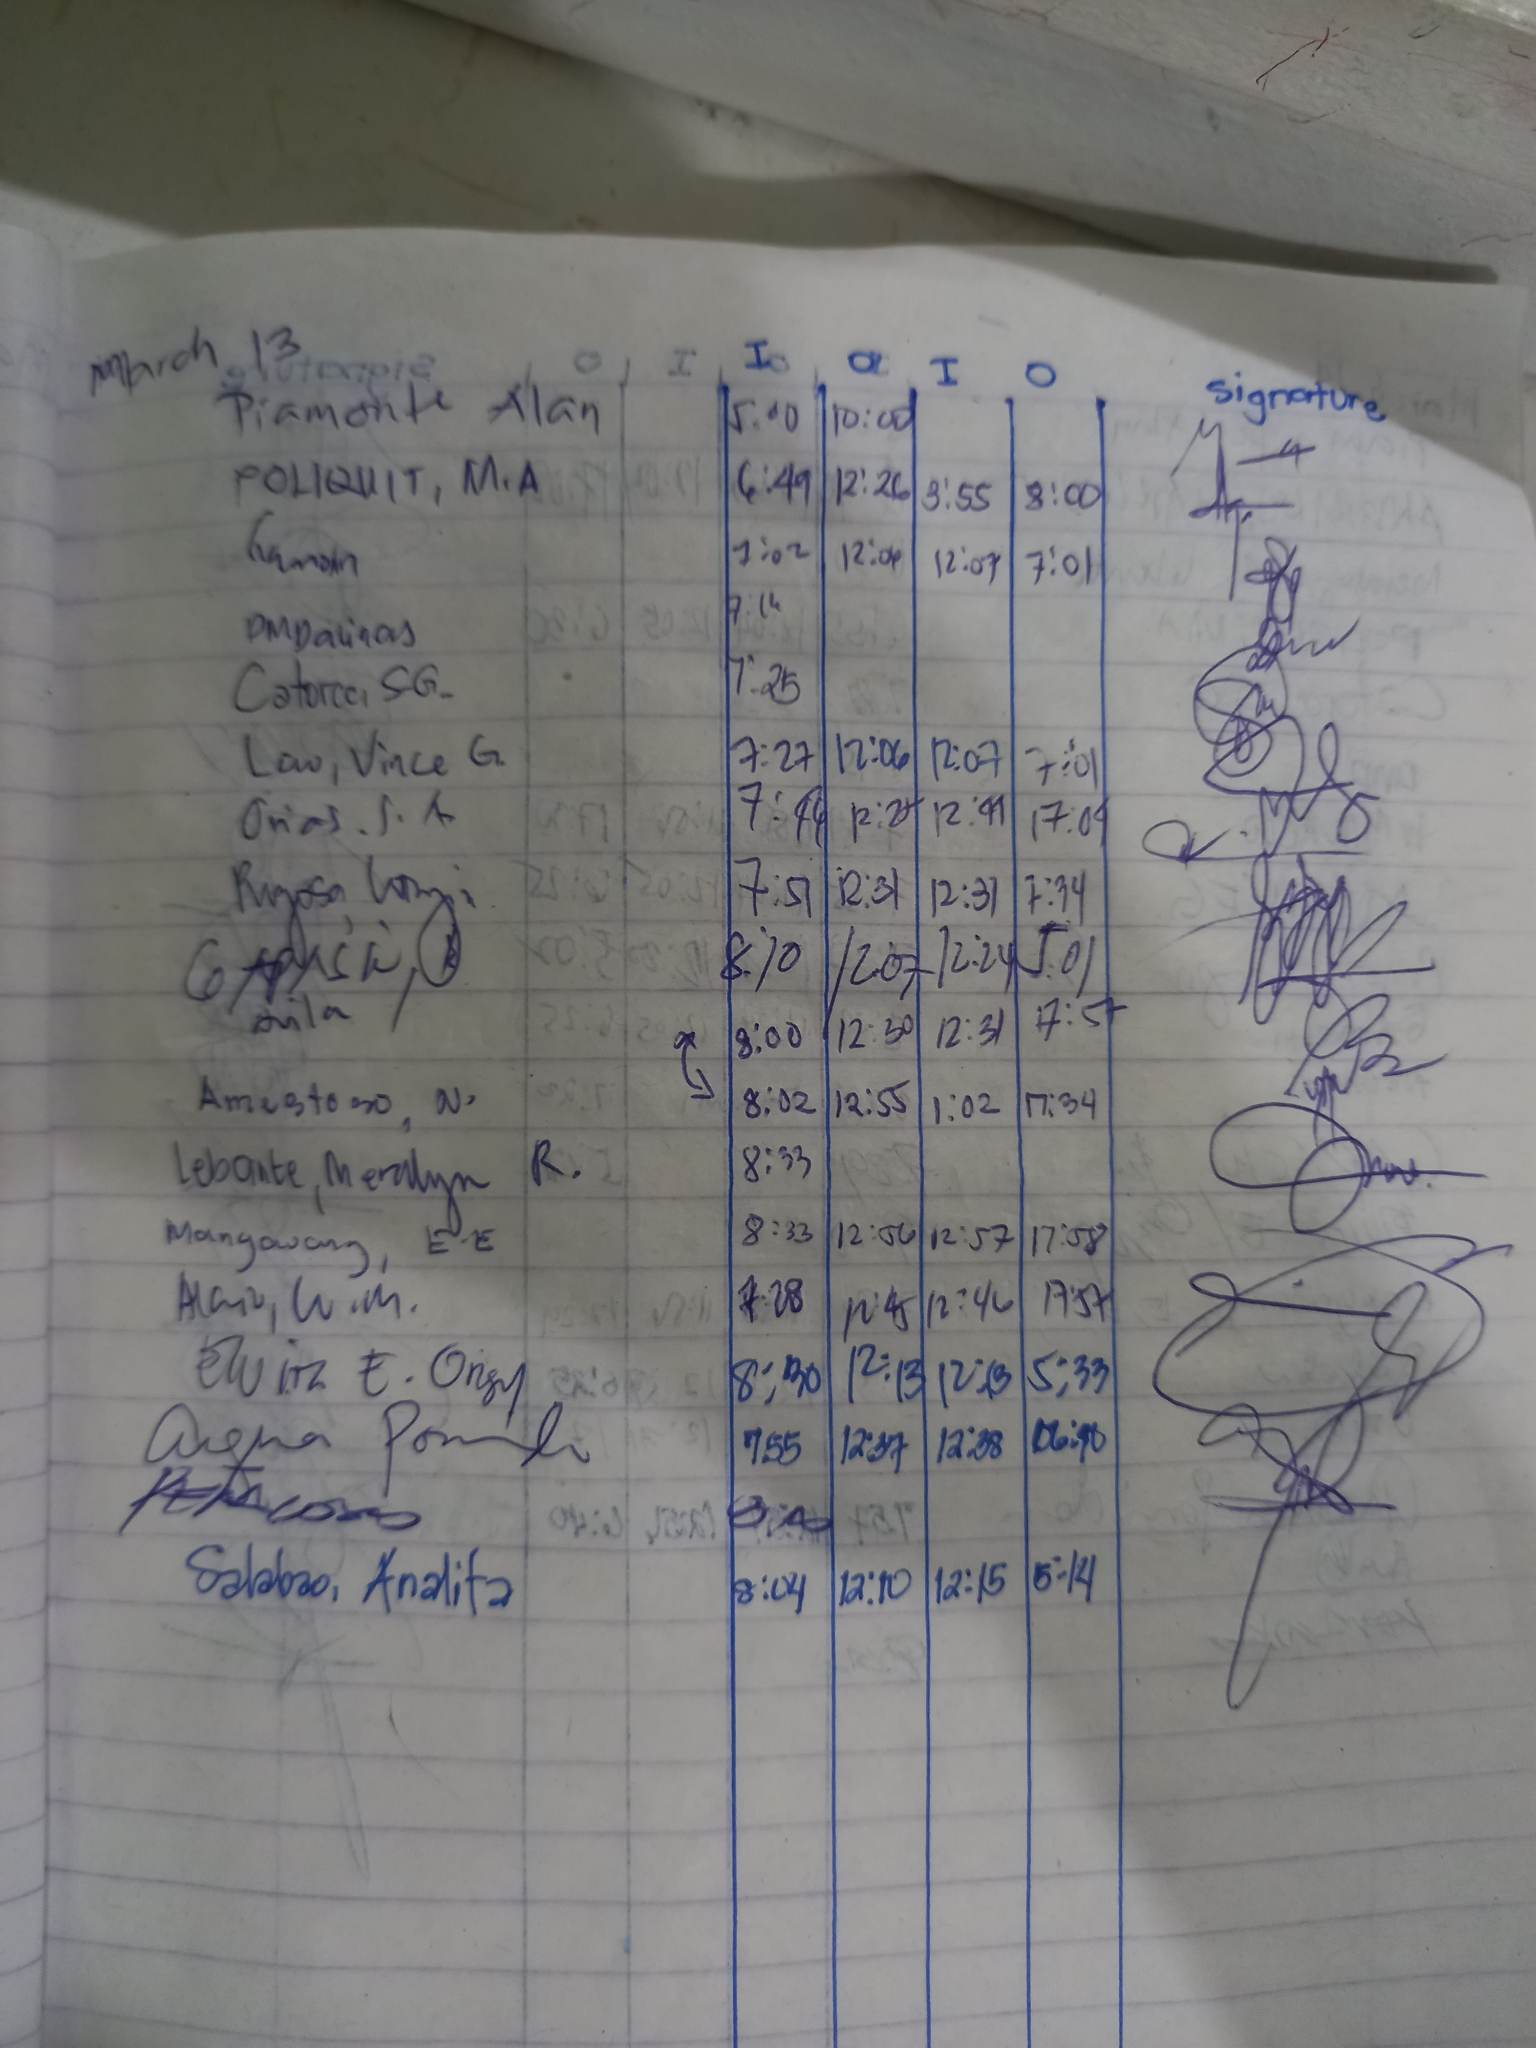 March 13
I O I O Signature
Piamonte Alan 5:00 10:00
POLIQUIT, M.A 6:49 12:26 3:55 8:00
7:02 12:06 12:07 7:01
DMDalinas 7:14
Catorce, SG. 7:25
Law, Vince G. 7:27 12:06 12:07 7:01
Orias. S. A 7:44 12:41 17:04
7:51 12:31 12:31 7:34
8:10 12:07 12:24 5:01
avila 8:00 12:30 12:31 17:57
Amestoso, N. 8:02 12:55 1:02 17:34
Lebante, Meralyn R. 8:33
Mangawang, E.E 8:33 12:56 12:57 17:58
W.M. 7:28 12:45 12:46 17:57
E. 8:30 12:13 12:13 5:33
755 12:37 12:38 06:40
Salabao, Analita 8:04 12:10 12:15 5:14